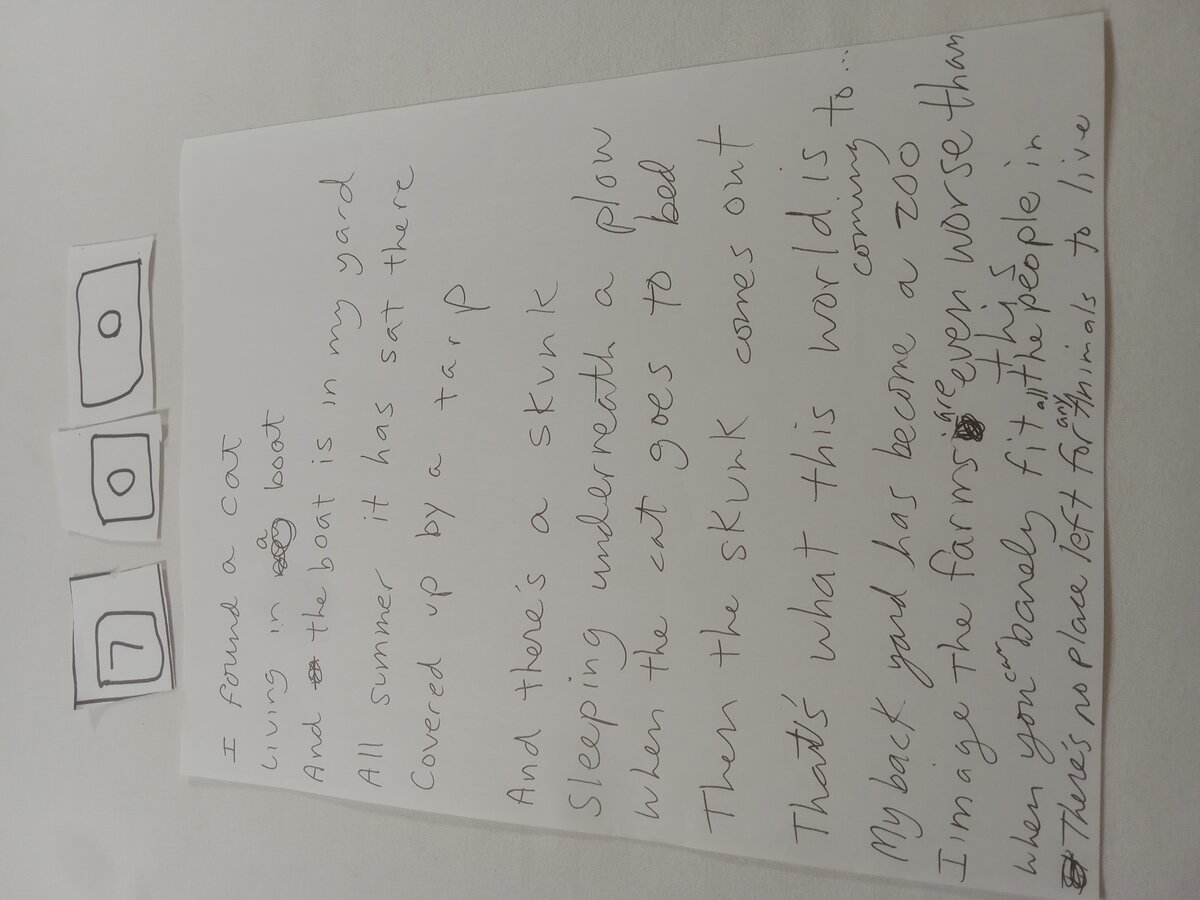 7 0 0
I found a cat
Living in a boat
And the boat is in my yard
All summer it has sat there
Covered up by a tarp
And there's a skunk
Sleeping underneath a plow
When the cat goes to bed
Then the skunk comes out
That's what this world is coming to...
My back yard has become a zoo
I image the farms are even worse than this
When you can barely fit all the people in
There's no place left for any Animals to live